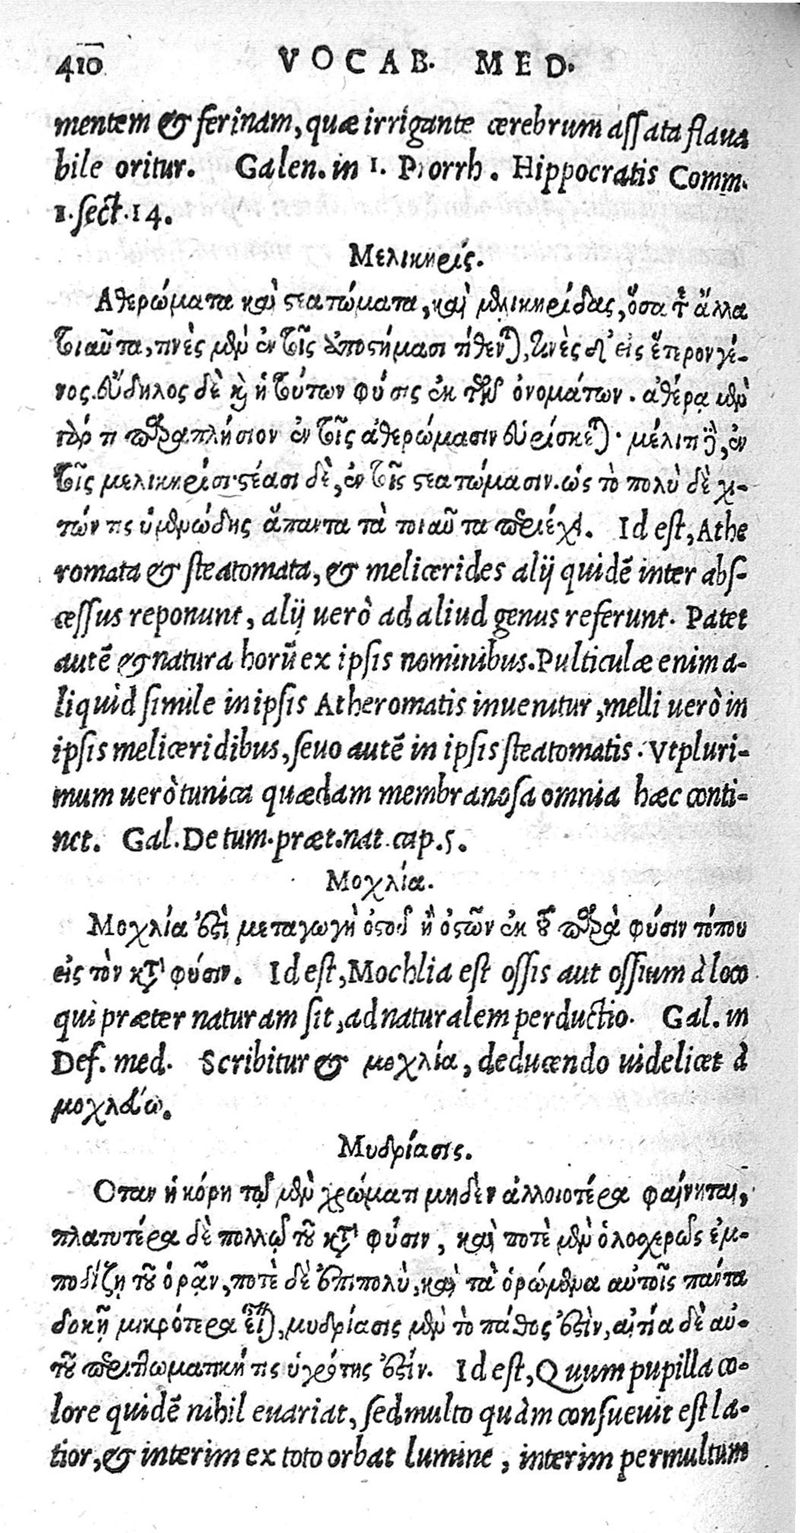 410 VOCAB. MED.
mentem & ferinam, quæ irrigante cerebrum assata flaua
bile oritur. Galen. in 1. Prorrh. Hippocratis Comm.
1. sect. 14.
Μελικηρίς.
Αθερώματα καὶ στεατώματα, καὶ μελικηρίδας, ὅσα τ᾽ ἄλλα
τοιαῦτα, τινὲς μὲν ἐν τοῖς ἀποστήμασι τίθενται, τινὲς δ᾽ εἰς ἕτερον γέ-
νος. εὔδηλος δὲ κὴ ἡ τούτων φύσις ἐκ τῶν ὀνομάτων. ἀθέρᾳ μὲν
γάρ τι παραπλήσιον ἐν τοῖς ἀθερώμασιν εὑρίσκεται· μέλιτι δὲ, ἐν
τοῖς μελικηρίσι· στέασι δὲ, ἐν τοῖς στεατώμασιν. ὡς τὸ πολὺ δὲ χι-
τών τις ὑμενώδης ἅπαντα τὰ τοιαῦτα περιέχει. Id est, Athe
romata & steatomata, & melicerides alij quidē inter abs-
cessus reponunt, alij uerò ad aliud genus referunt. Patet
autē & natura horū ex ipsis nominibus. Pulticulæ enim a-
liquid simile in ipsis Atheromatis inuenitur, melli uerò in
ipsis meliceridibus, seuo autē in ipsis steatomatis. Vtpluri-
mum uerò tunica quædam membranosa omnia hæc conti-
net. Gal. De tum. præt. nat. cap. 5.
Μοχλία.
Μοχλία ἐστὶ μεταγωγὴ ὀστοῦ ἢ ὀστῶν ἐκ τοῦ παρὰ φύσιν τόπου
εἰς τὸν κατὰ φύσιν. Id est, Mochlia est ossis aut ossium à loco
qui præter naturam sit, ad naturalem perductio. Gal. in
Def. med. Scribitur & μοχλία, deducendo uidelicet à
μοχλεύω.
Μυδρίασις.
Οταν ἡ κόρη τῷ μὲν χρώματι μηδὲν ἀλλοιοτέρα φαίνηται,
πλατυτέρα δὲ πολλῷ τοῦ κατὰ φύσιν, καὶ ποτὲ μὲν ὁλοσχερῶς ἐμ-
ποδίζῃ τοῦ ὁρᾷν, ποτὲ δὲ ἐπιπολὺ, καὶ τὰ ὁρώμενα αὐτοῖς πάντα
δοκῇ μικρότερα εἶναι, μυδρίασις μὲν τὸ πάθος ἐστὶν, αἰτία δὲ αὐ-
τοῦ περιττωματική τις ὑγρότης ἐστίν. Id est, Quum pupilla co-
lore quidē nihil euariat, sed multo quàm consueuit est la-
tior, & interim ex toto orbat lumine, interim permultum